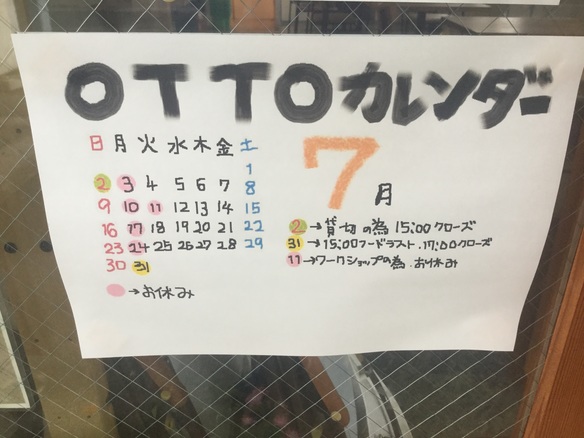 OTTOカレンダー
日 月 火 水 木 金 土
1
2 3 4 5 6 7 8
9 10 11 12 13 14 15
16 17 18 19 20 21 22
23 24 25 26 27 28 29
30 31
→お休み
7月
2→貸切の為 15:00クローズ
31→15:00フードラスト.17:00クローズ
11→ワークショップの為.お休み